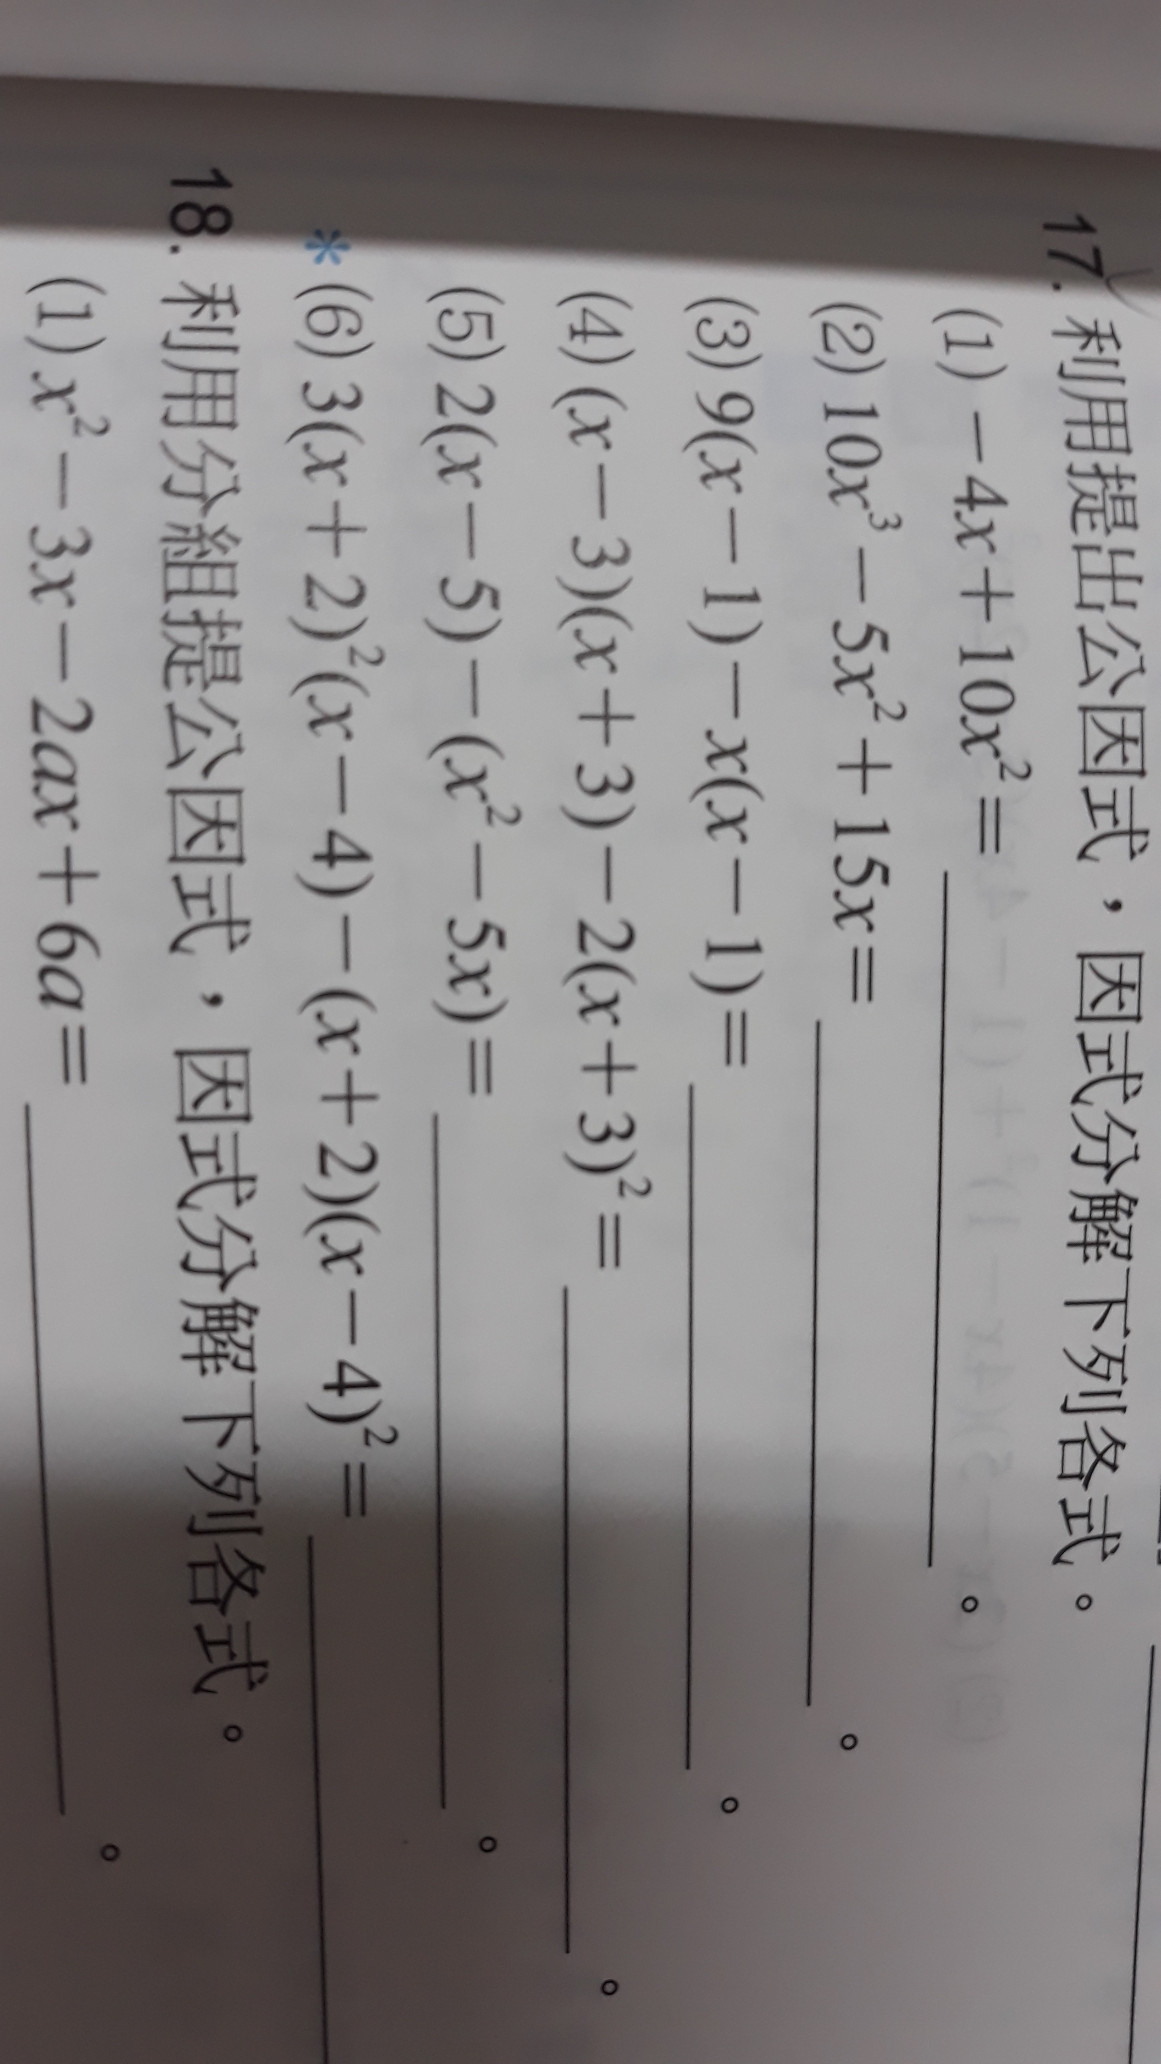 17. 利用提出公因式，因式分解下列各式。
(1) －4x＋10x²＝________。
(2) 10x³－5x²＋15x＝________。
(3) 9(x－1)－x(x－1)＝________。
(4) (x－3)(x＋3)－2(x＋3)²＝________。
(5) 2(x－5)－(x²－5x)＝________。
*(6) 3(x＋2)²(x－4)－(x＋2)(x－4)²＝________
18. 利用分組提公因式，因式分解下列各式。
(1) x²－3x－2ax＋6a＝________。